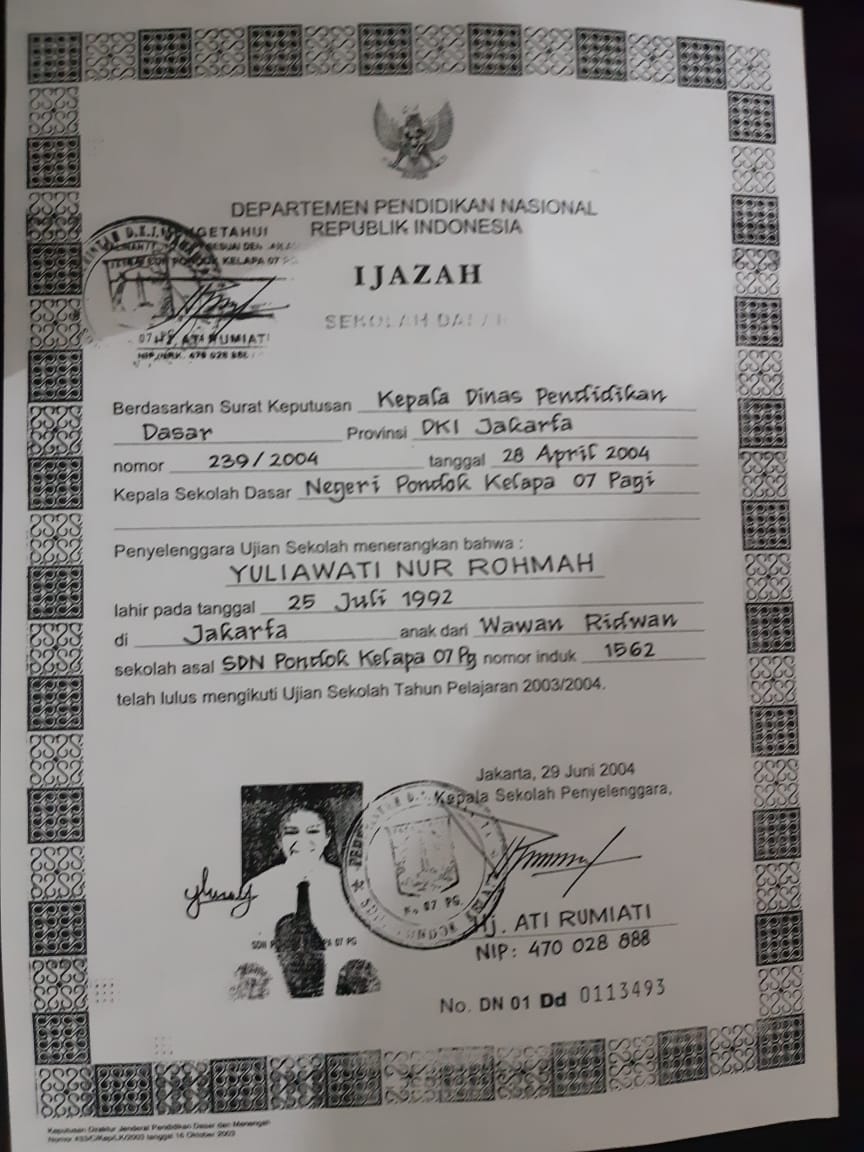 DEPARTEMEN PENDIDIKAN NASIONAL
REPUBLIK INDONESIA
IJAZAH
SEKOLAH DASAR
MENGETAHUI
KELAPA 07 PG
Hj. ATI RUMIATI
NIP/NRK. 470 028 888
Berdasarkan Surat Keputusan Kepala Dinas Pendidikan
Dasar Provinsi DKI Jakarta
nomor 239/2004 tanggal 28 April 2004
Kepala Sekolah Dasar Negeri Pondok Kelapa 07 Pagi
Penyelenggara Ujian Sekolah menerangkan bahwa :
YULIAWATI NUR ROHMAH
lahir pada tanggal 25 Juli 1992
di Jakarta anak dari Wawan Ridwan
sekolah asal SDN Pondok Kelapa 07 Pg nomor induk 1562
telah lulus mengikuti Ujian Sekolah Tahun Pelajaran 2003/2004.
Jakarta, 29 Juni 2004
Kepala Sekolah Penyelenggara,
07 PG.
SDN 07 PG
Hj. ATI RUMIATI
NIP: 470 028 888
No. DN 01 Dd 0113493
Keputusan Direktur Jenderal Pendidikan Dasar dan Menengah
Nomor tanggal 16 Oktober 2003